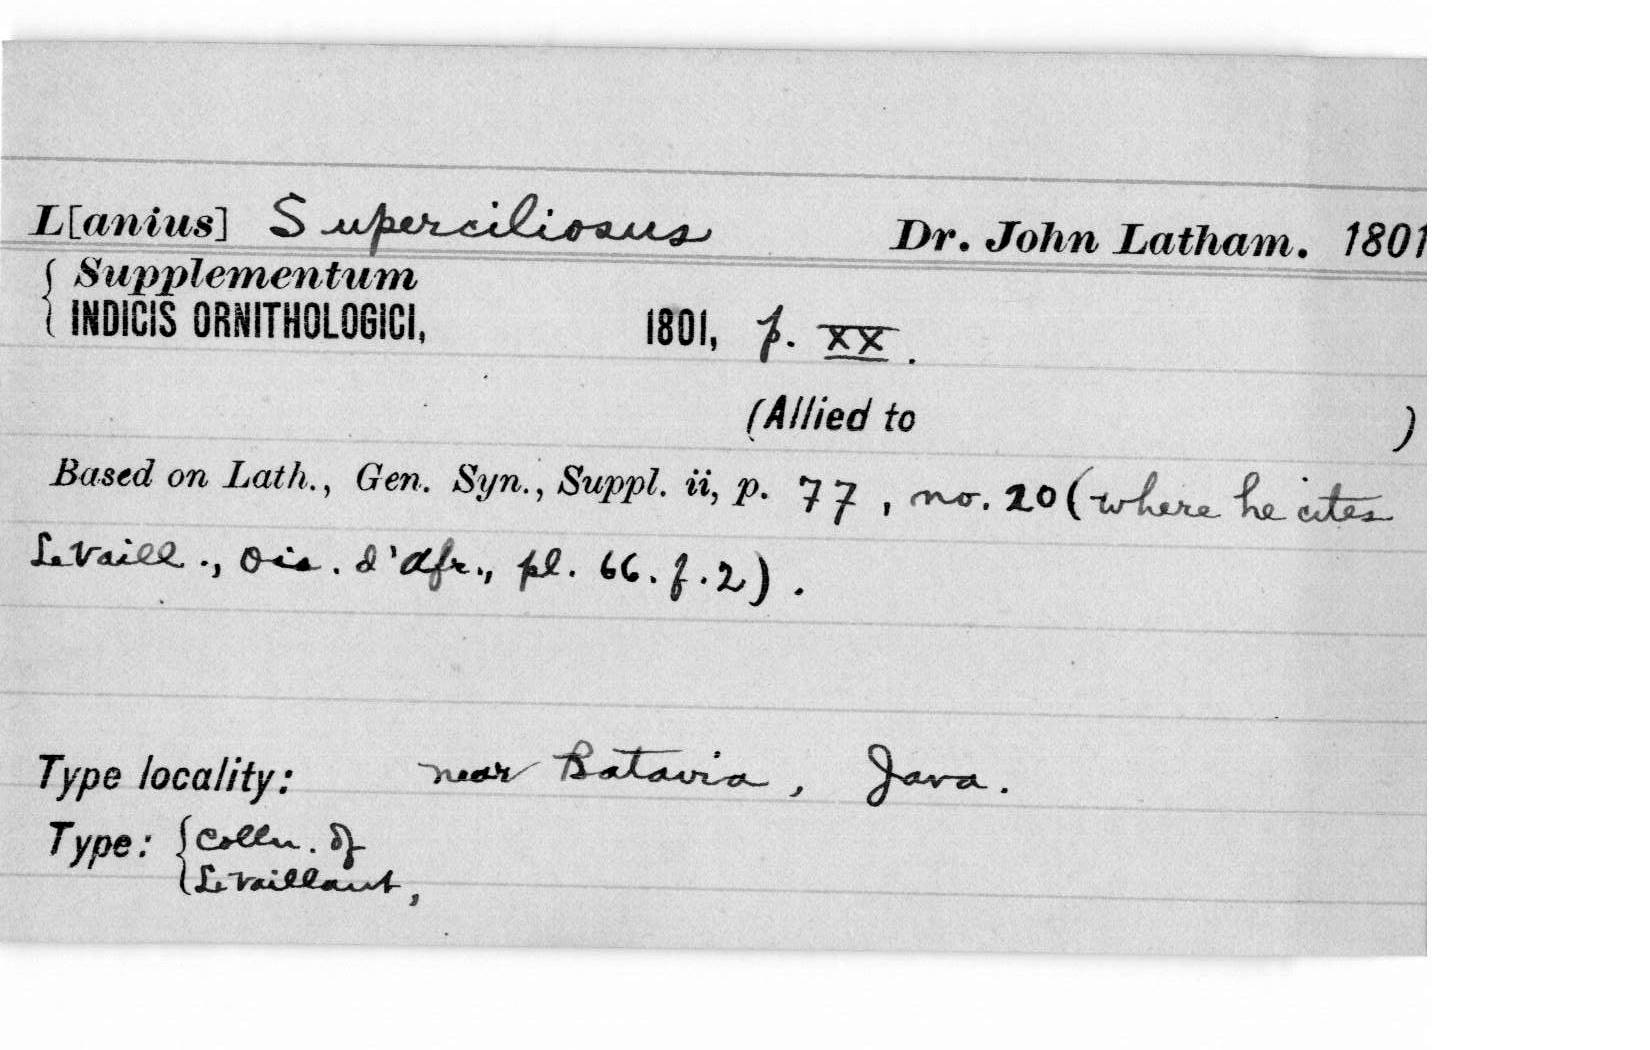 L[anius] Superciliosus Dr. John Latham. 1801
{ Supplementum
INDICIS ORNITHOLOGICI, 1801, p. XX.
(Allied to )
Based on Lath., Gen. Syn., Suppl. ii, p. 77, no. 20 (where he cites
LeVaill., Ois. d'Afr., pl. 66. f. 2).
Type locality: near Batavia, Java.
Type: { Colln. of
LeVaillant,